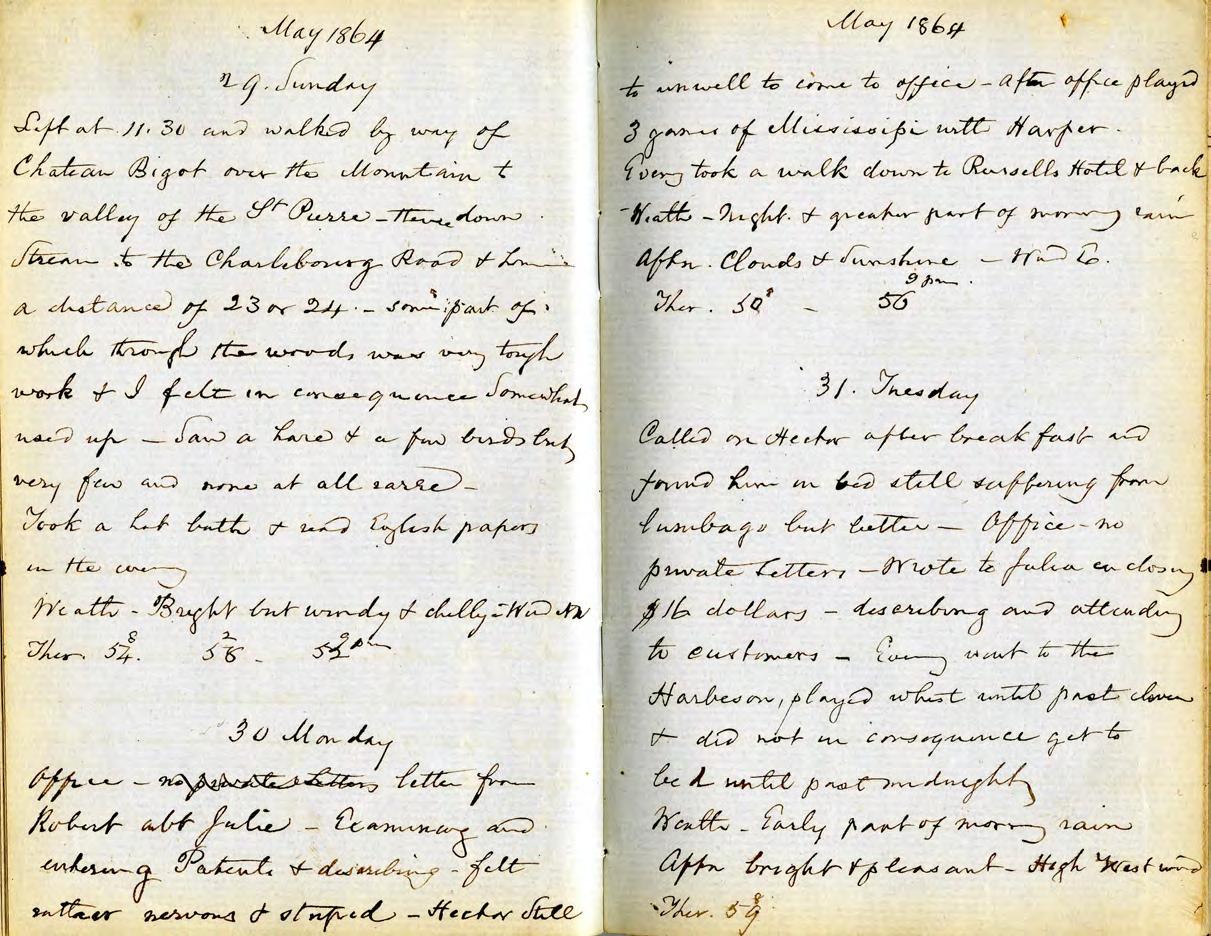 May 1864
29. Sunday
Left at 11.30 and walked by way of
Chateau Bigot over the Mountain to
the valley of the St Pierre - thence down
Stream to the Charlsbourg Road & home
a distance of 23 or 24 - some part of
which through the woods was very tough
work & I felt in consequence Somewhat
used up - Saw a hare & a few birds but
very few and none at all rare -
Took a hot bath & read English papers
in the eveng
Weath - Bright but windy & chilly - Wind NW
8 2 9 pm
Ther. 54. 56 - 52
30 Monday
Office - no private Letters letter from
Robert abt Julie - Examining and
entering Patents & describing - felt
rather nervous & stupid - Hector Still
May 1864
to unwell to come to office - After office played
3 games of Mississippi with Harper.
Eveng took a walk down to Russells Hotel & back
Weath - Night & greater part of morning rain
Aftn. Clouds & Sunshine - Wind E.
9 pm.
Ther. 50 - 56
31. Tuesday
Called on Hector after breakfast and
found him in bed still suffering from
lumbago but better - Office - no
private Letters - Wrote to Julia enclosing
$16 dollars - describing and attending
to customers - Eveng went to the
Harbeson, played whist until past eleven
& did not in consequence get to
bed until past midnight
Weath - Early part of morng rain
Aftn bright & pleasant - High West wind
8
Ther. 59